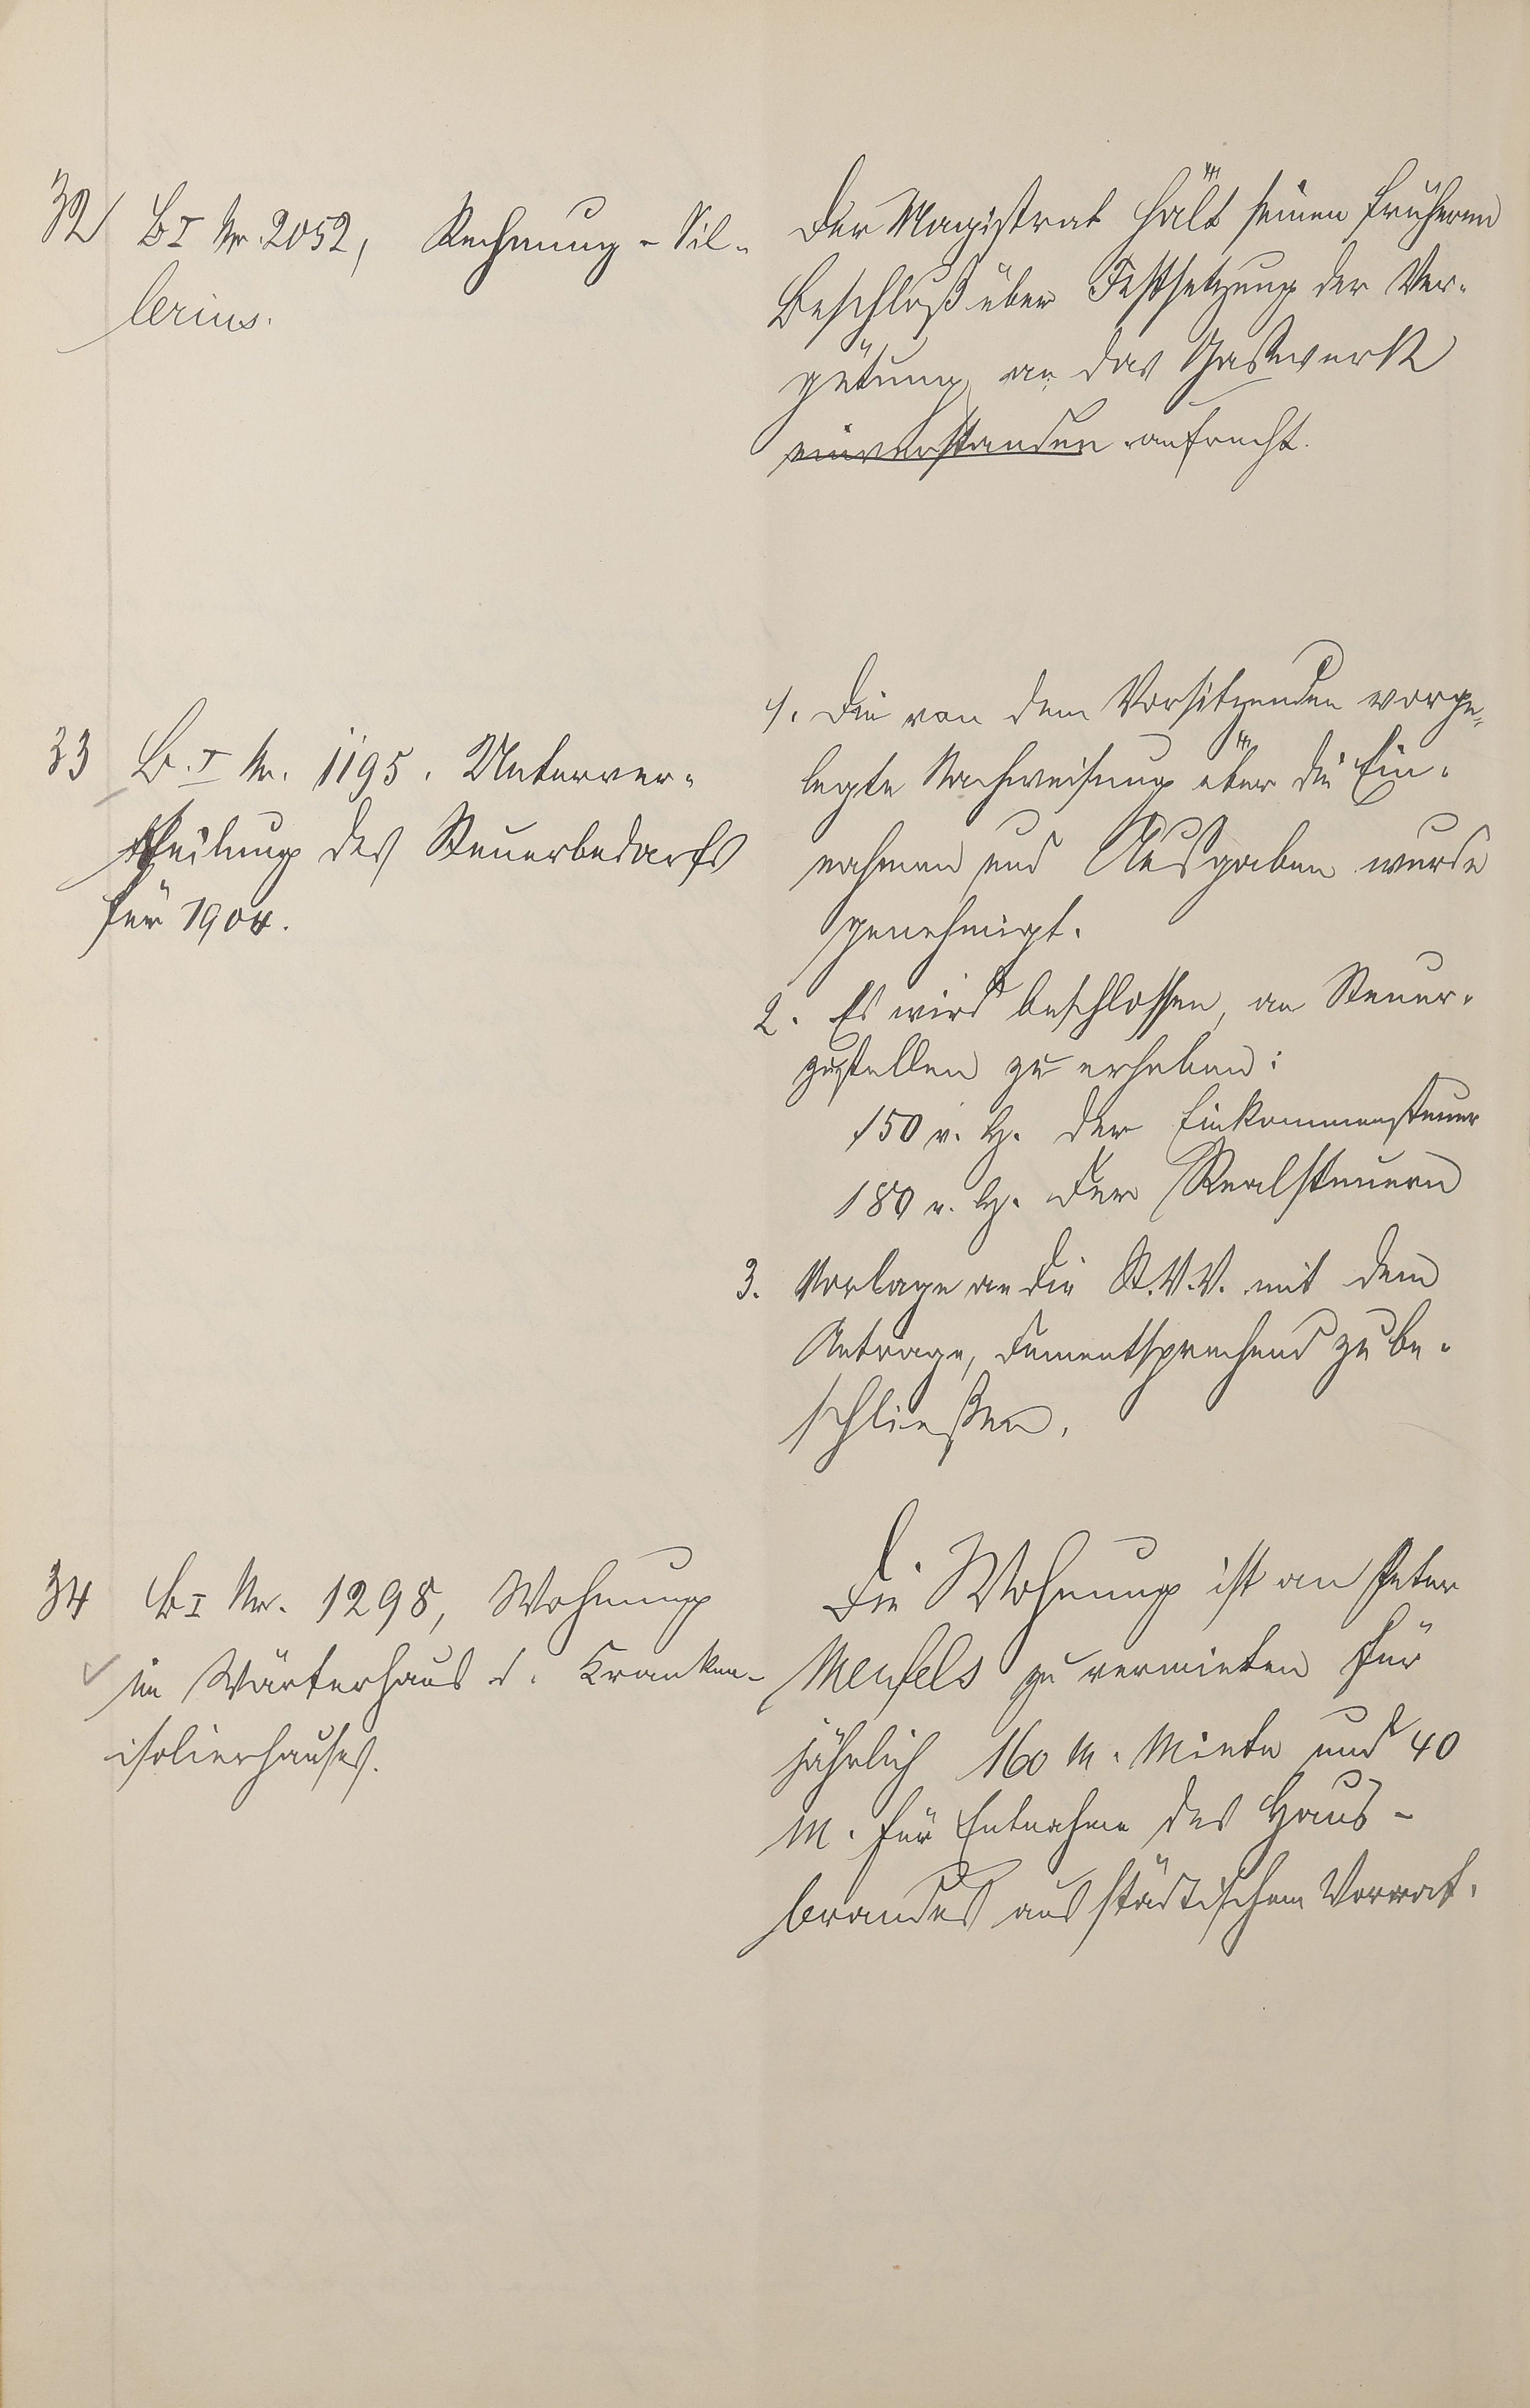 32 B I Nr 2052, Rechnung - Sil-
lerius.
Der Magistrat hält seinen früheren
Beschluß über Festsetzung der Ver-
gütung an das Gaswerk
einverstanden aufrecht.
33 B. I Nr. 1195. Unterver-
theilung des Steuerbedarfs
für 1904.
1. Die von dem Vorsitzenden vorge-
legte Nachweisung über die Ein-
nahmen und Ausgaben wurde
genehmigt.
2. Es wird beschlossen, an Steuer-
zu erheben:
150 v. H. der Einkommensteuer
180 v. H. der Realsteuern
3. Vorlage an die St.V.V. mit dem
Antrage, dementsprechend zu be-
schließen.
34 B I Nr. 1298, Wohnung
im Wärterhaus d. Kranken-
isolierhauses.
Die Wohnung ist an Peter
zu vermieten für
jährlich 160 M. Miete und 40
M. für Entnahme des Haus-
brandes aus städtischem Vorrat.